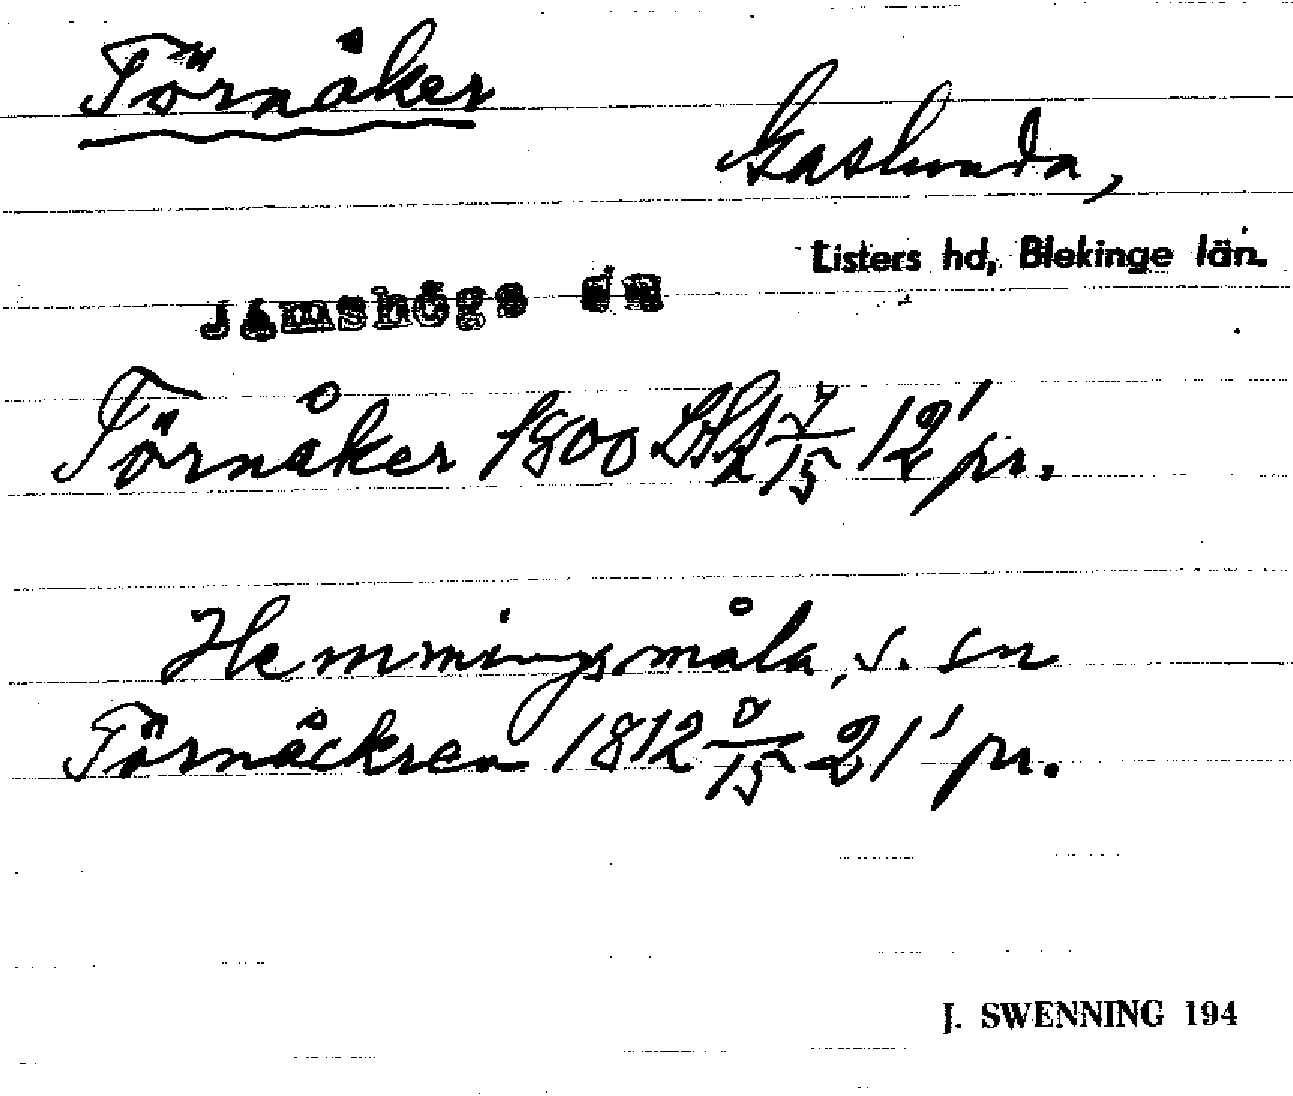 Törnåker
Gaslunda,
Listers hd, Blekinge län.
Jämshögs sn
Törnåker 1800 15 12' pr.
Hemmingsmåla, s. sn
Törnåckren 1812 15 21' pr.
J. SWENNING 194